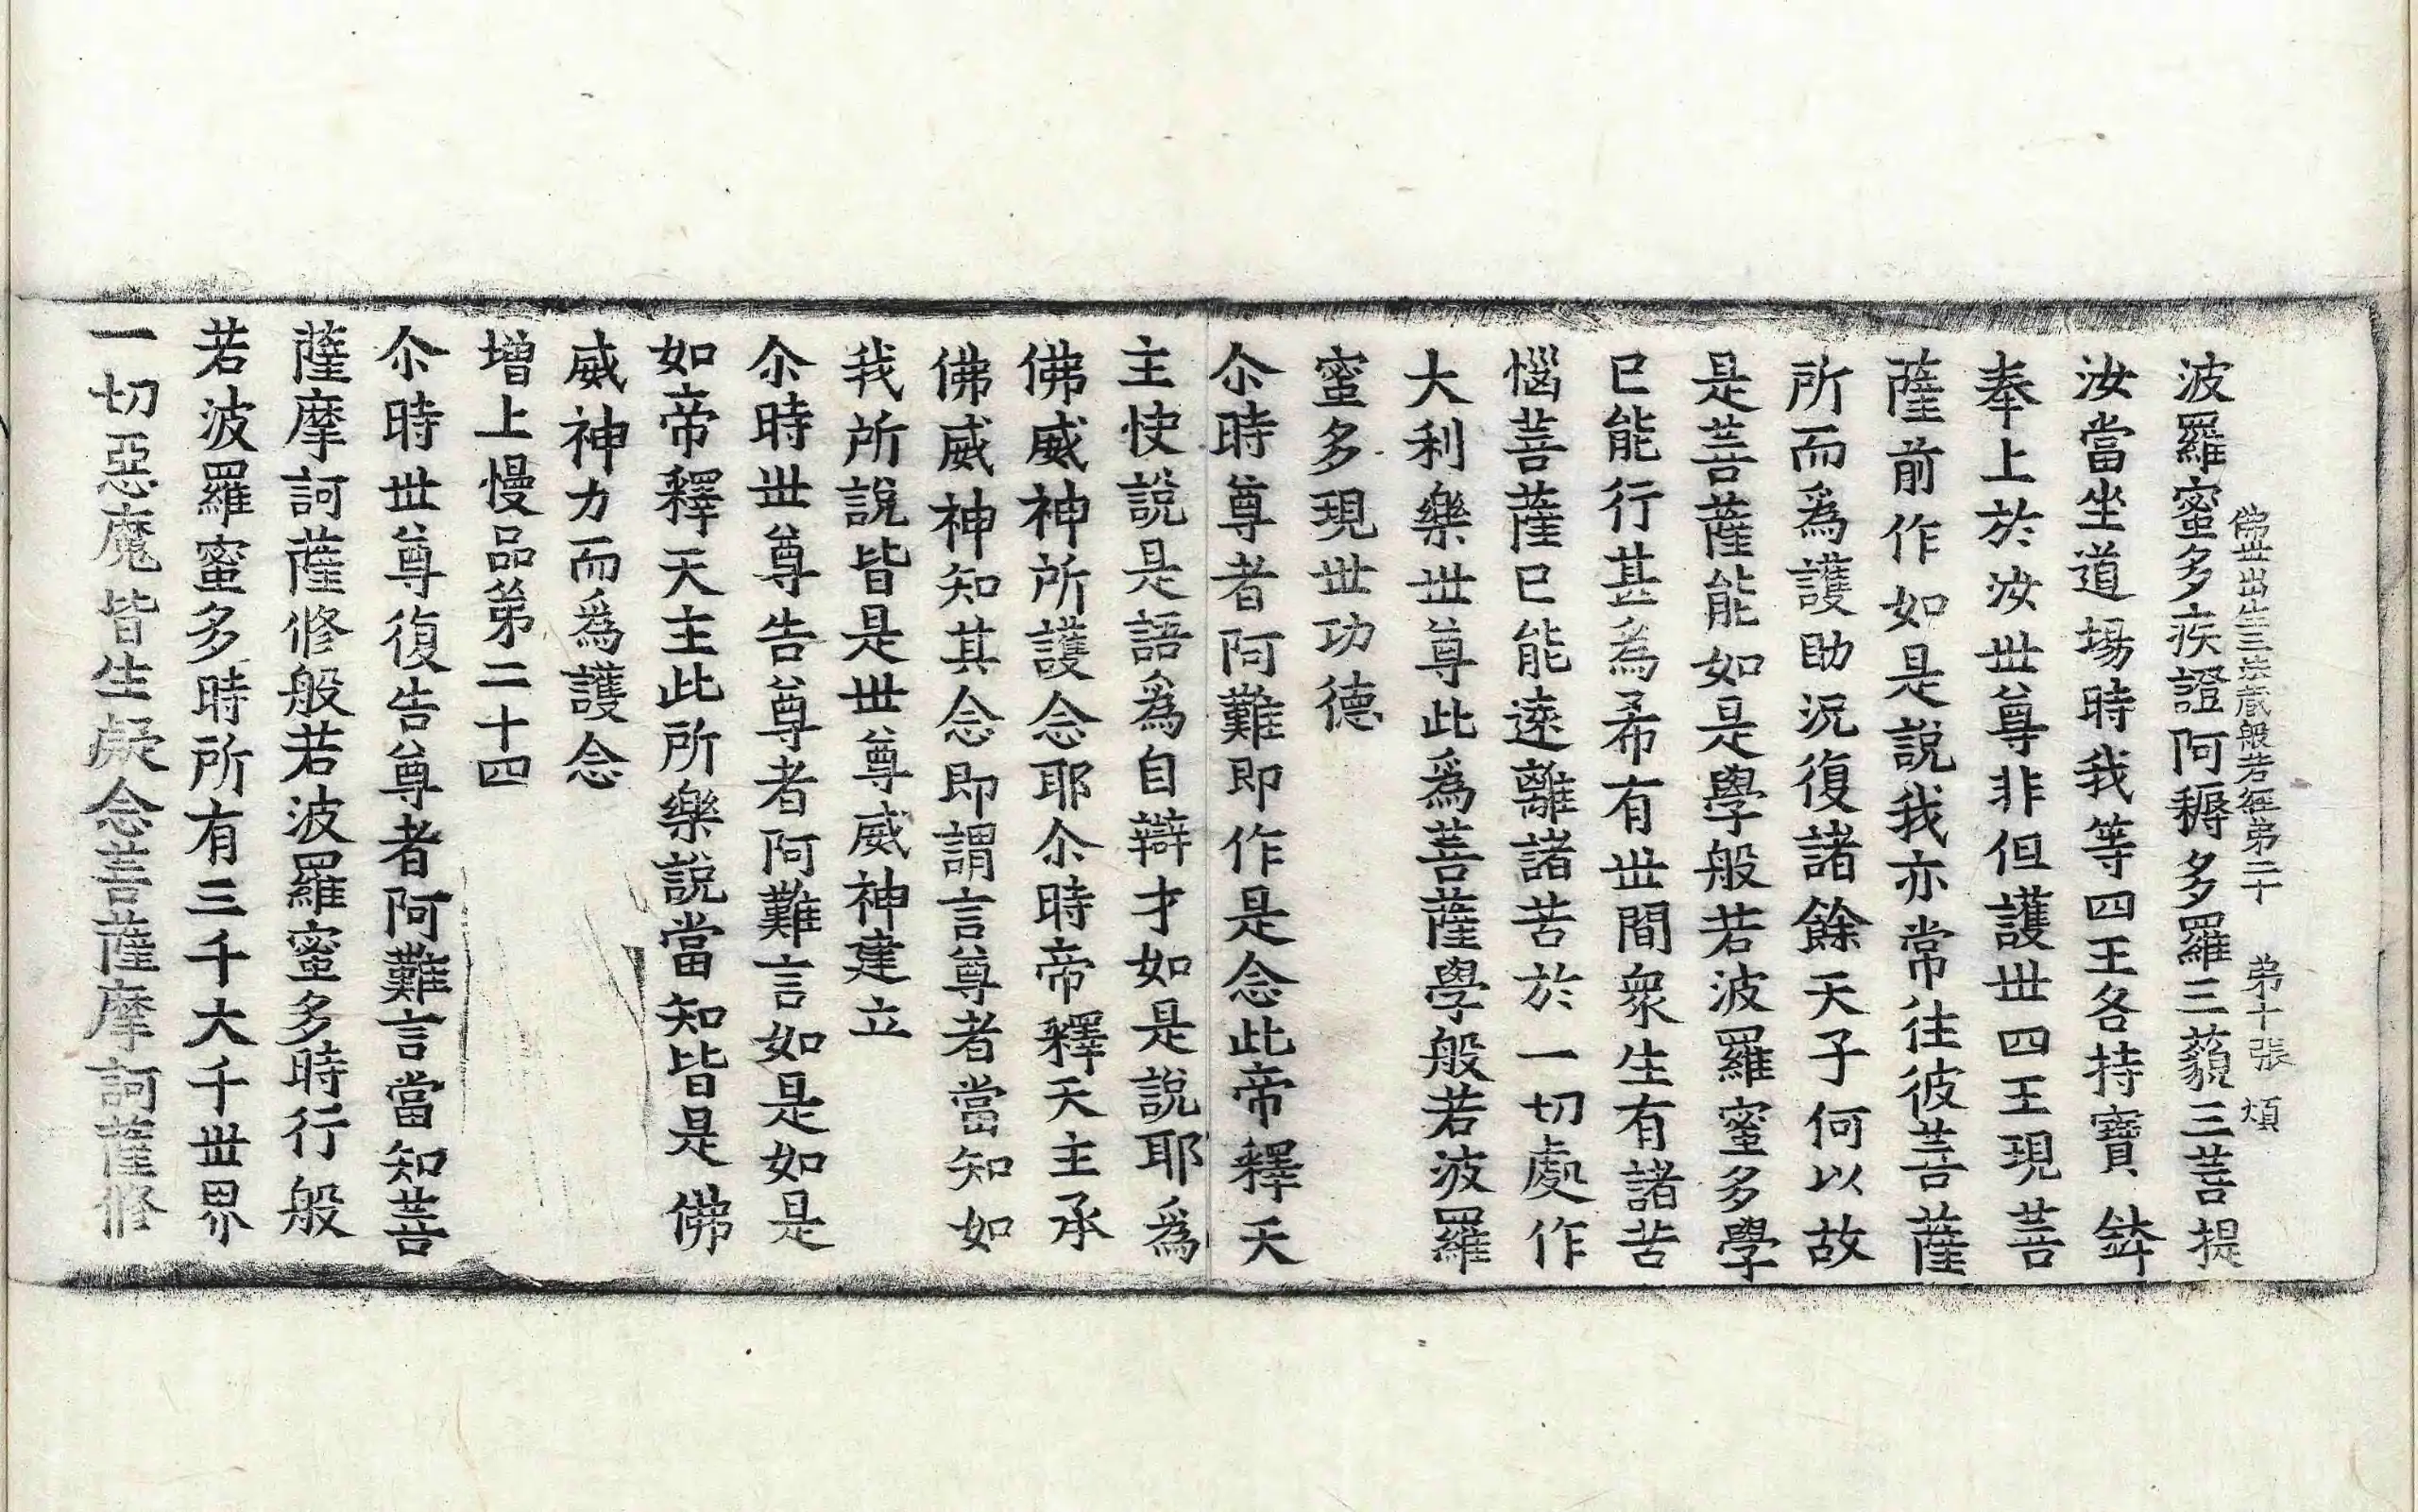 佛世出生三法藏般若經第二十 第十張 煩
波羅蜜多疾證阿耨多羅三藐三菩提
汝當坐道場時我等四王各持寶鉢
奉上於汝世尊非但護世四王現菩
薩前作如是說我亦常往彼菩薩
所而爲護助況復諸餘天子何以故
是菩薩能如是學般若波羅蜜多學
已能行甚爲希有世間衆生有諸苦
惱菩薩已能遠離諸苦於一切處作
大利樂世尊此爲菩薩學般若波羅
蜜多現世功德
尒時尊者阿難即作是念此帝釋天
主快說是語爲自辯才如是說耶爲
佛威神所護念耶尒時帝釋天主承
佛威神知其念即謂言尊者當知如
我所說皆是世尊威神建立
尒時世尊告尊者阿難言如是如是
如帝釋天主此所樂說當知皆是佛
威神力而爲護念
增上慢品第二十四
尒時世尊復告尊者阿難言當知菩
薩摩訶薩修般若波羅蜜多時行般
若波羅蜜多時所有三千大千世界
一切惡魔皆生疑念菩薩摩訶薩修